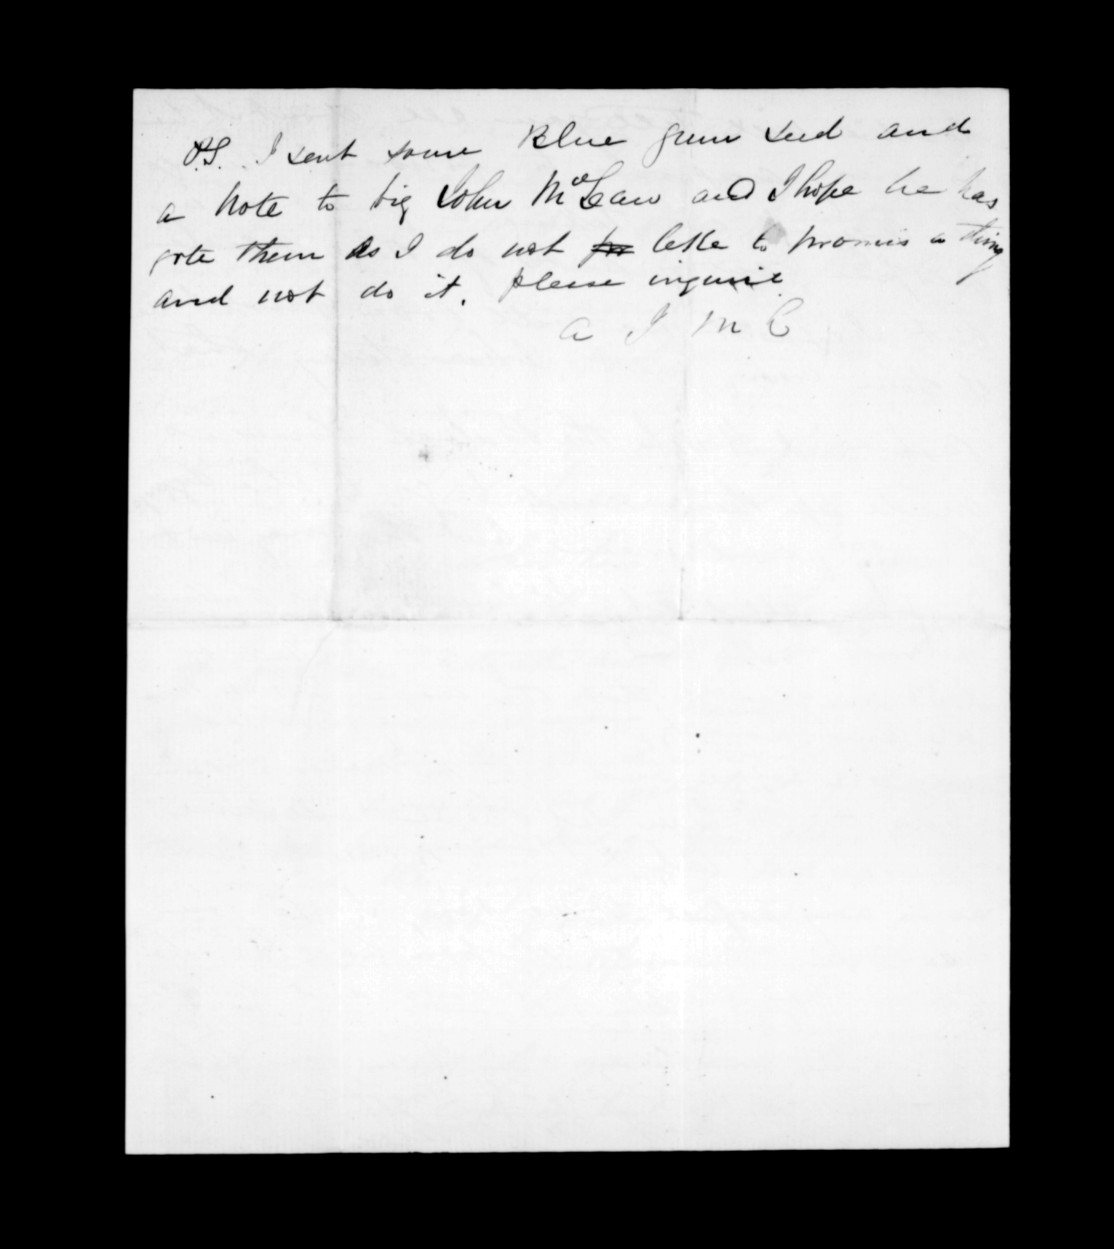 P.S. I sent some Blue gum seed and
a Note to big John McLean and I hope he has
gote them as I do not like to promis a thing
and not do it. please inquire
A J McC